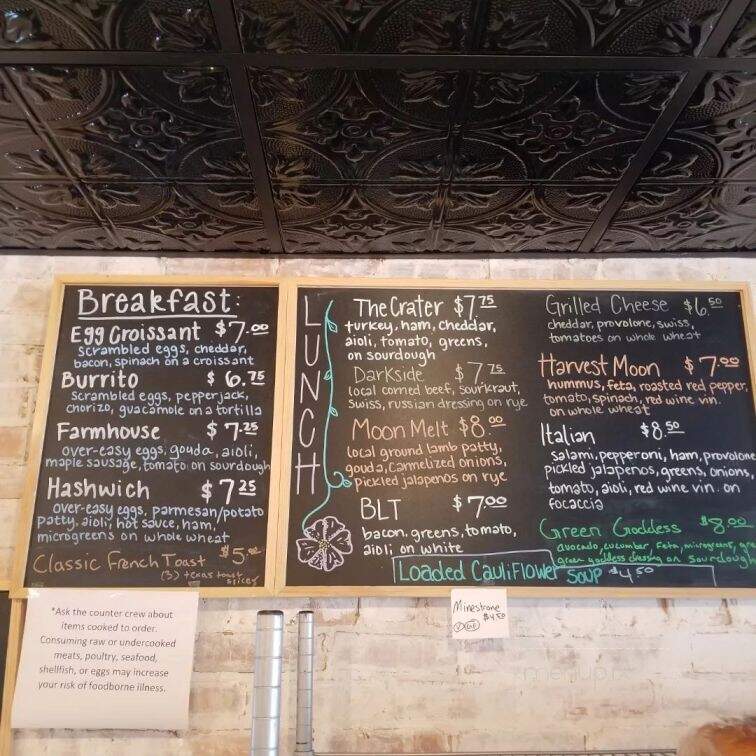 Breakfast:
Egg Croissant $7.00
scrambled eggs, cheddar,
bacon, spinach on a croissant
Burrito $6.75
Scrambled eggs, pepperjack,
chorizo, guacamole on a tortilla
Farmhouse $7.25
over-easy eggs, gouda, aioli,
maple sausage, tomato on sourdough
Hashwich $7.25
over-easy eggs, parmesan/potato
patty, aioli, hot sauce, ham,
microgreens on whole wheat
Classic French Toast $5.00
(3) texas toast
slices
LUNCH
The Crater $7.75
turkey, ham, cheddar,
aioli, tomato, greens,
on sourdough
Darkside $7.75
local corned beef, sourkraut,
swiss, russian dressing on rye
Moon Melt $8.00
local ground lamb patty,
gouda, carmelized onions,
pickled jalapenos on rye
BLT $7.00
bacon, greens, tomato,
aioli on white
Grilled Cheese $6.50
cheddar, provolone, swiss,
tomatoes on whole wheat
Harvest Moon $7.00
hummus, feta, roasted red pepper,
tomato, spinach, red wine vin.
on whole wheat
Italian $8.50
salami, pepperoni, ham, provolone
pickled jalapenos, greens, onions,
tomato, aioli, red wine vin. on
focaccia
Green Goddess $8.00
avocado, cucumber, feta, microgreens,
green goddess dressing on sourdough
Loaded Cauliflower Soup $4.50
Minestrone
V GF $4.50
*Ask the counter crew about
items cooked to order.
Consuming raw or undercooked
meats, poultry, seafood,
shellfish, or eggs may increase
your risk of foodborne illness.